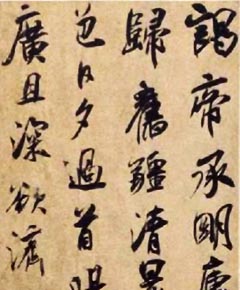 謁帝承明廬
歸舊疆清晨
邑日夕過首
廣且深欲濟